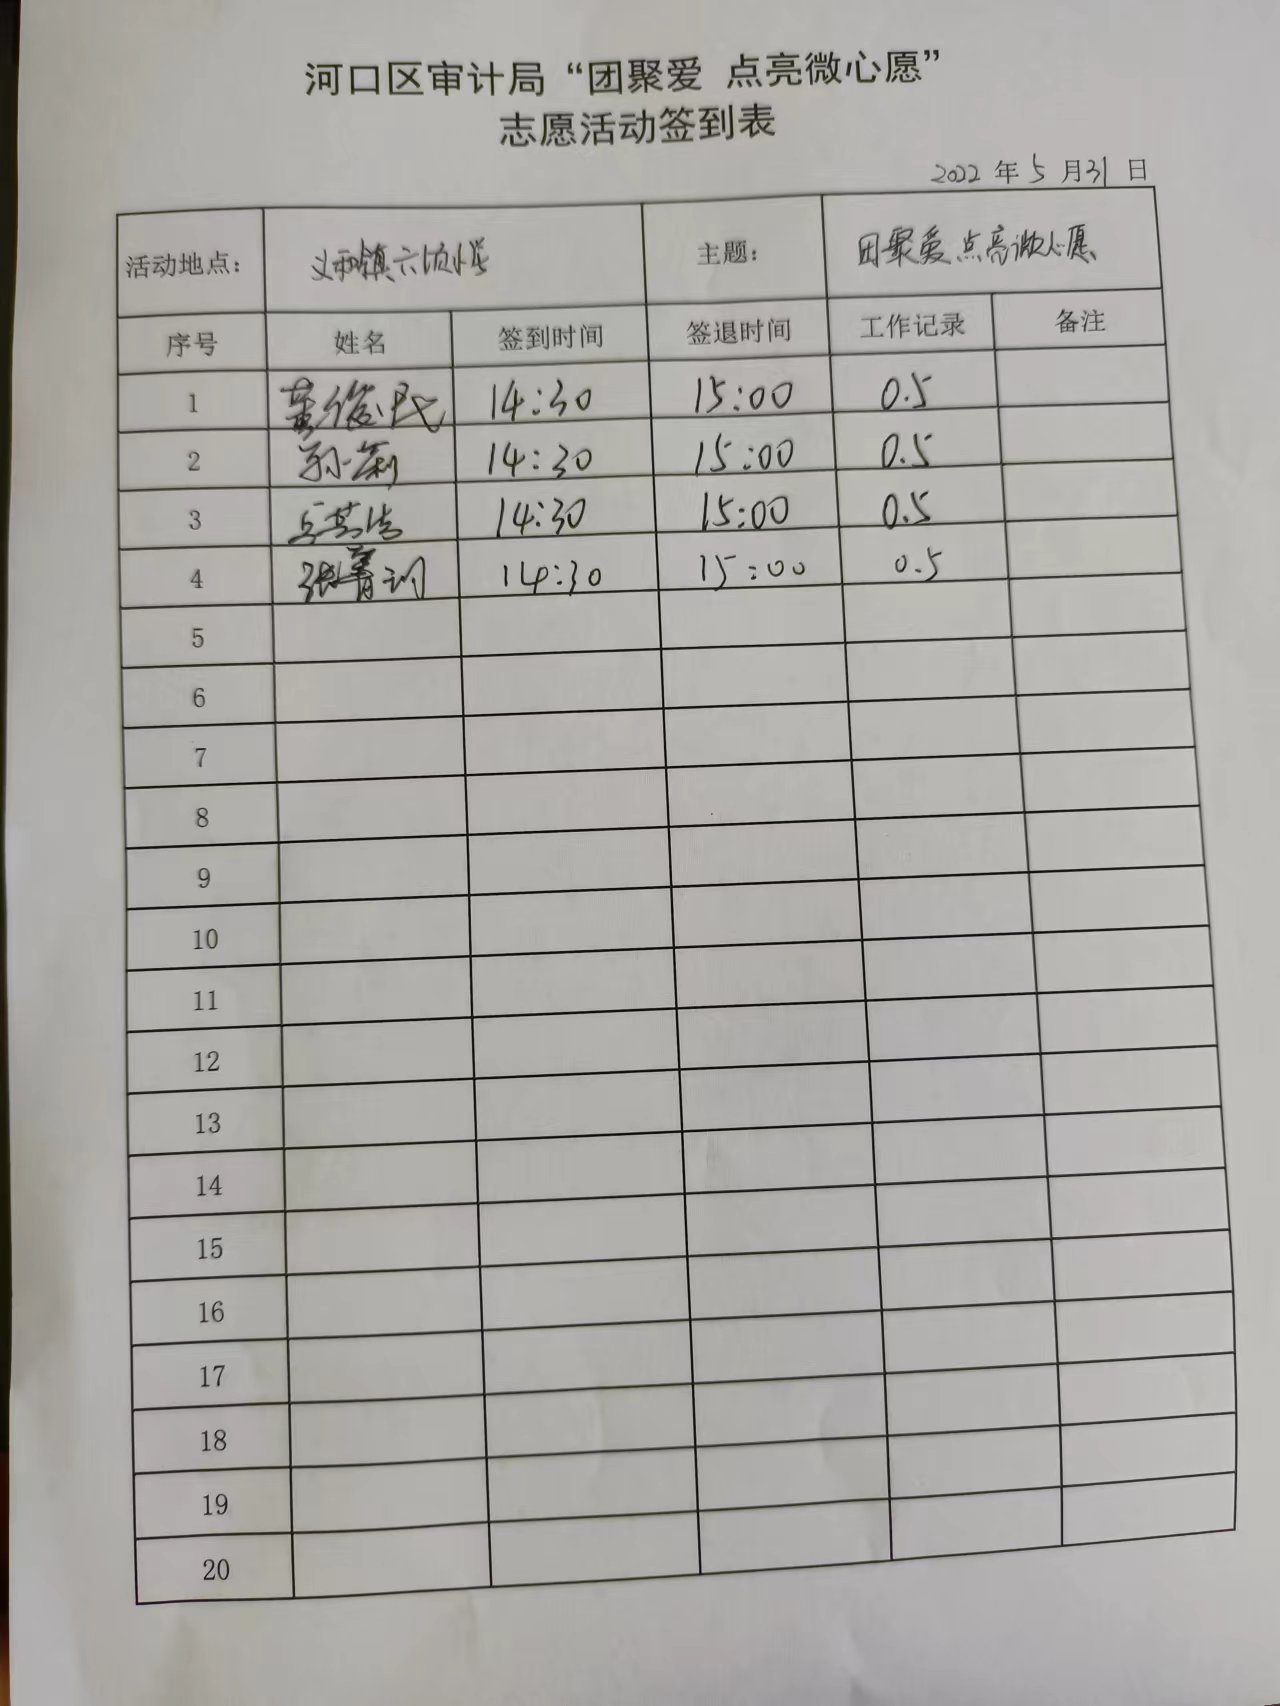 河口区审计局“团聚爱 点亮微心愿”
志愿活动签到表
2022 年 5 月 31 日
活动地点： 义和镇六顷小学 主题： 团聚爱点亮微心愿
序号 姓名 签到时间 签退时间 工作记录 备注
1 董俊民 14:30 15:00 0.5
2 孙莉 14:30 15:00 0.5
3 14:30 15:00 0.5
4 张菁训 14:30 15:00 0.5
5
6
7
8
9
10
11
12
13
14
15
16
17
18
19
20